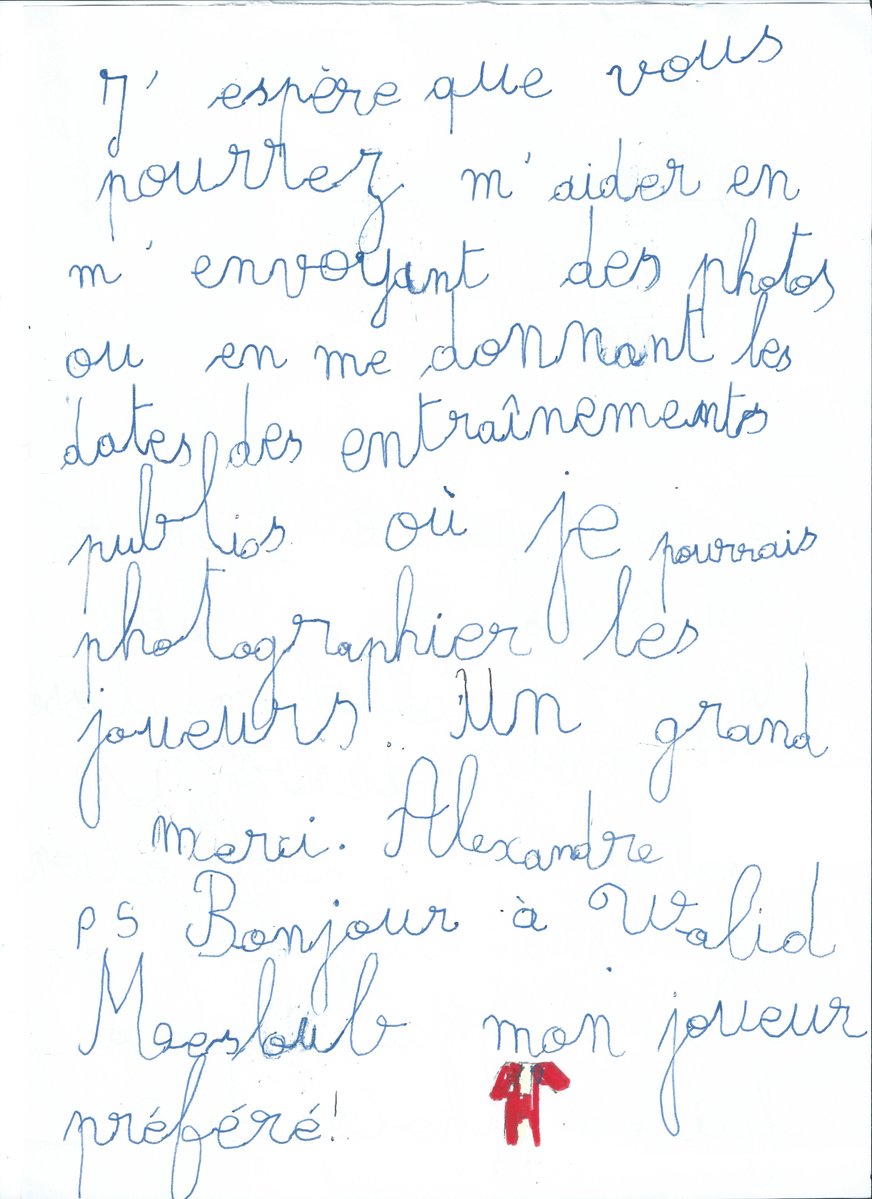 J' espère que vous
pourrez m'aider en
m' envoyant des photos
ou en me donnant les
dates des entraînements
publics où je pourrais
photographier les
joueurs. Un grand
merci. Alexandre
PS Bonjour à Walid
Mesloub mon joueur
préféré!